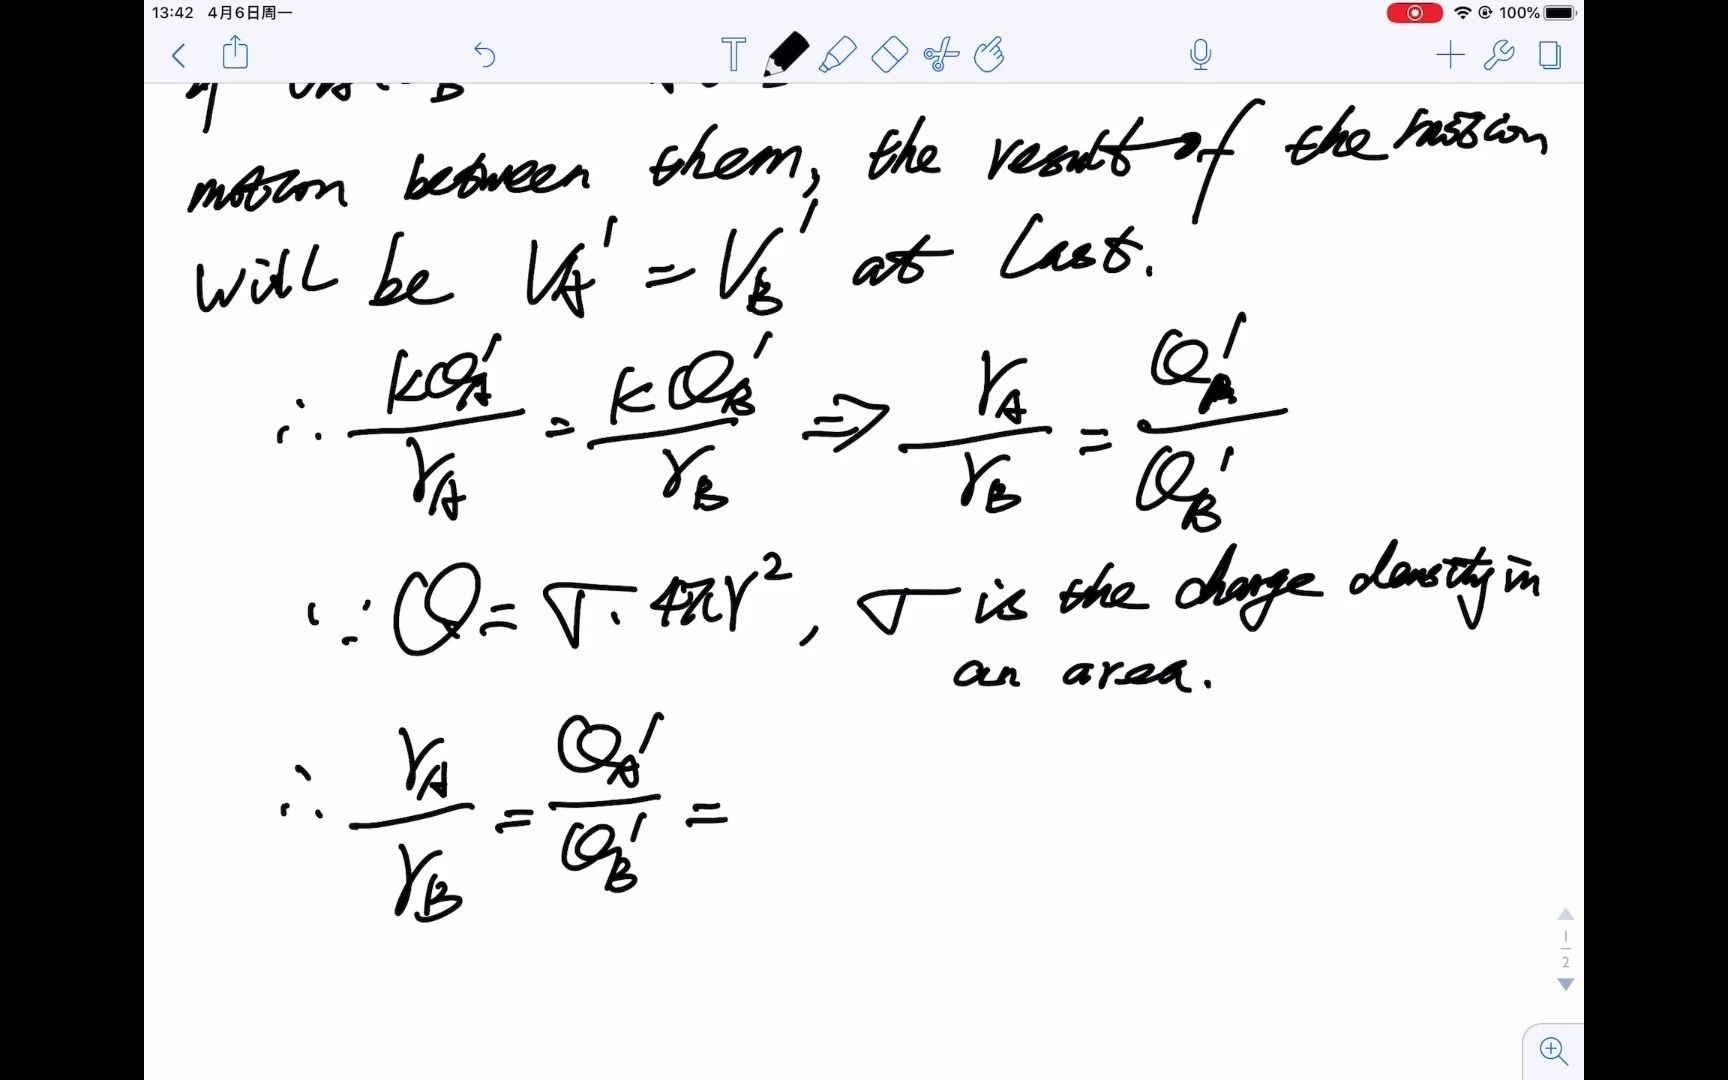 13:42 4月6日周一
100%
T
motion between them, the result of the motion
will be V_A' = V_B' at last.
∴ kQ_A'/r_A = kQ_B'/r_B ⇒ r_A/r_B = Q_A'/Q_B'
∵ Q = σ · 4πr², σ is the charge density in
an area.
∴ r_A/r_B = Q_A'/Q_B' =
1
2